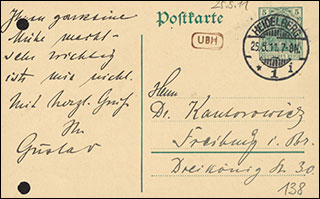 25.5.11
Ihnen
Mühe macht
sehr wichtig
ist mir nicht.
Mit herzl. Gruß
Ihr
Gustav
Postkarte
UBH
5 5
HEIDELBERG
25.5.11. 7-8N.
* 1 i
Herrn
Dr. Kantorowicz
Freiburg i. Br.
Dreikönig Str. 30.
138